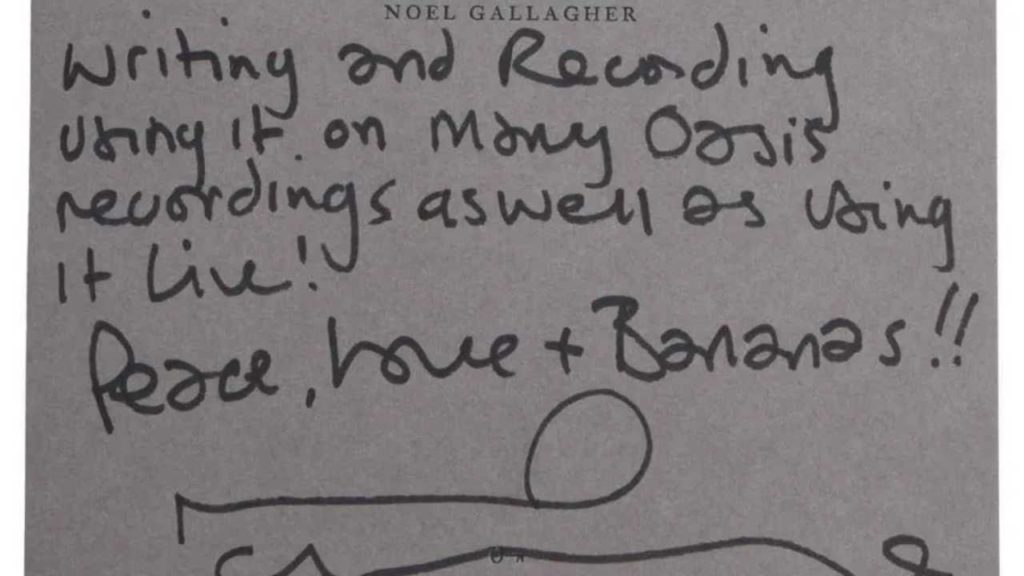 NOEL GALLAGHER
Writing and Recording
using it on Many Oasis
recordings aswell as using
it Live!
Peace, Love + Bananas!!